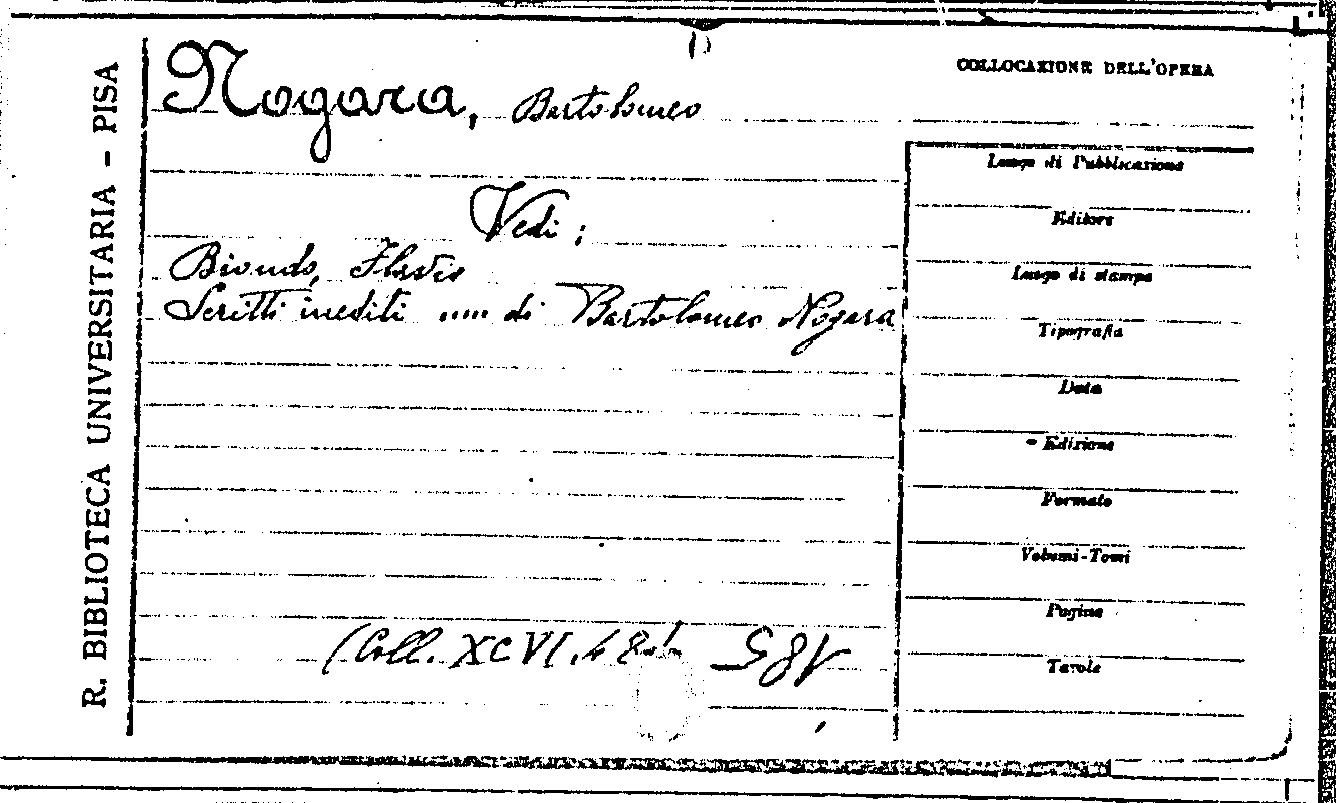 R. BIBLIOTECA UNIVERSITARIA - PISA
COLLOCAZIONE DELL'OPERA
Nogara, Bartolomeo
Vedi:
Biondo, Flavio
Scritti inediti .... di Bartolomeo Nogara
(Coll. XCVI. 4
Luogo di Pubblicazione
Editore
Luogo di stampa
Tipografia
Data
Edizione
Formato
Volumi-Tomi
Pagine
Tavole